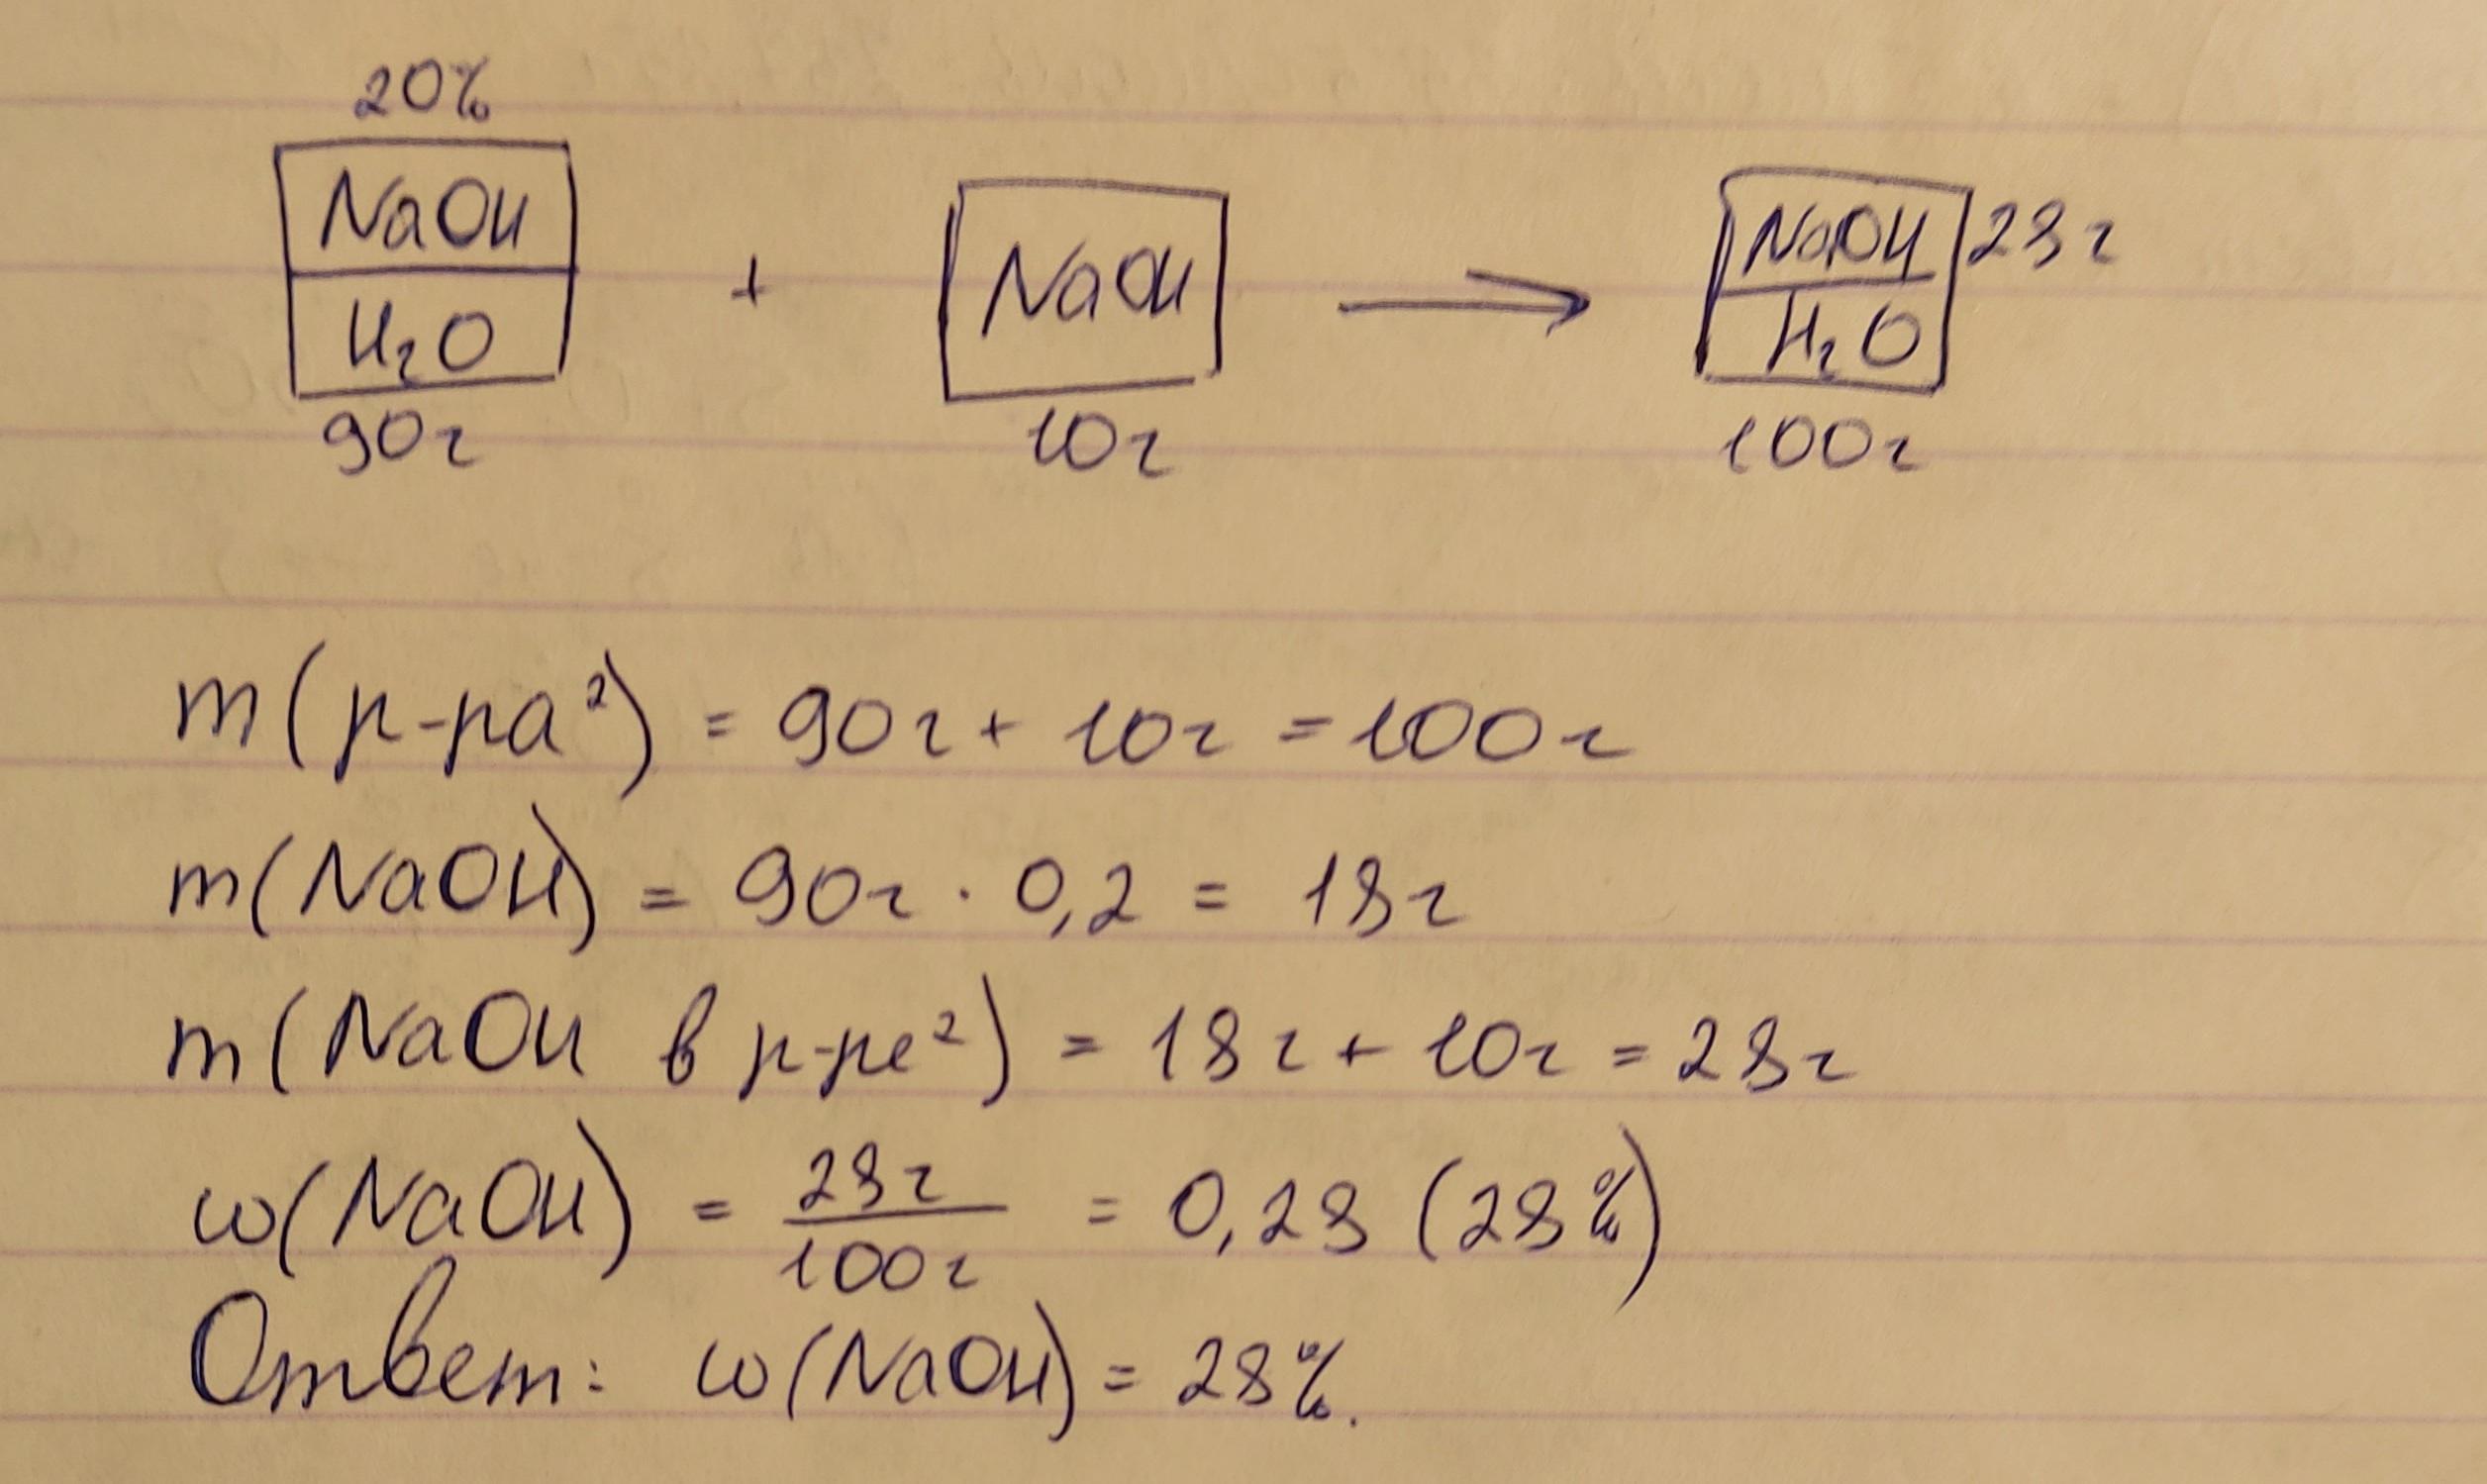 20%
NaOH
H₂O
90г
+
NaOH
10г
NaOH
H₂O
28г
100г
m(р-ра²) = 90г + 10г = 100г
m(NaOH) = 90г · 0,2 = 18г
m(NaOH в р-ре²) = 18г + 10г = 28г
ω(NaOH) = 28г/100г = 0,28 (28%)
Ответ: ω(NaOH) = 28%.